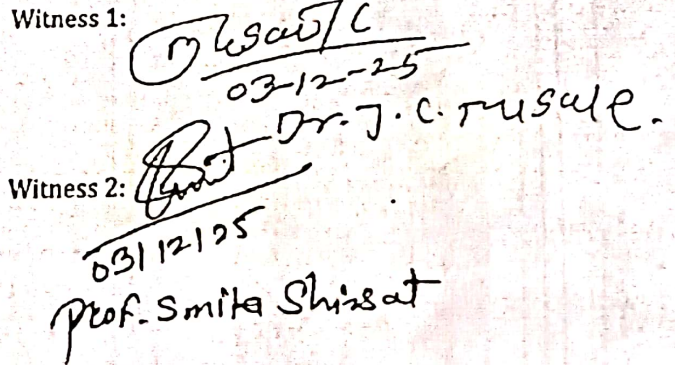 Witness 1:
03-12-25
Dr. J. C. Musale.
Witness 2:
03/12/25
Prof. Smita Shirsat